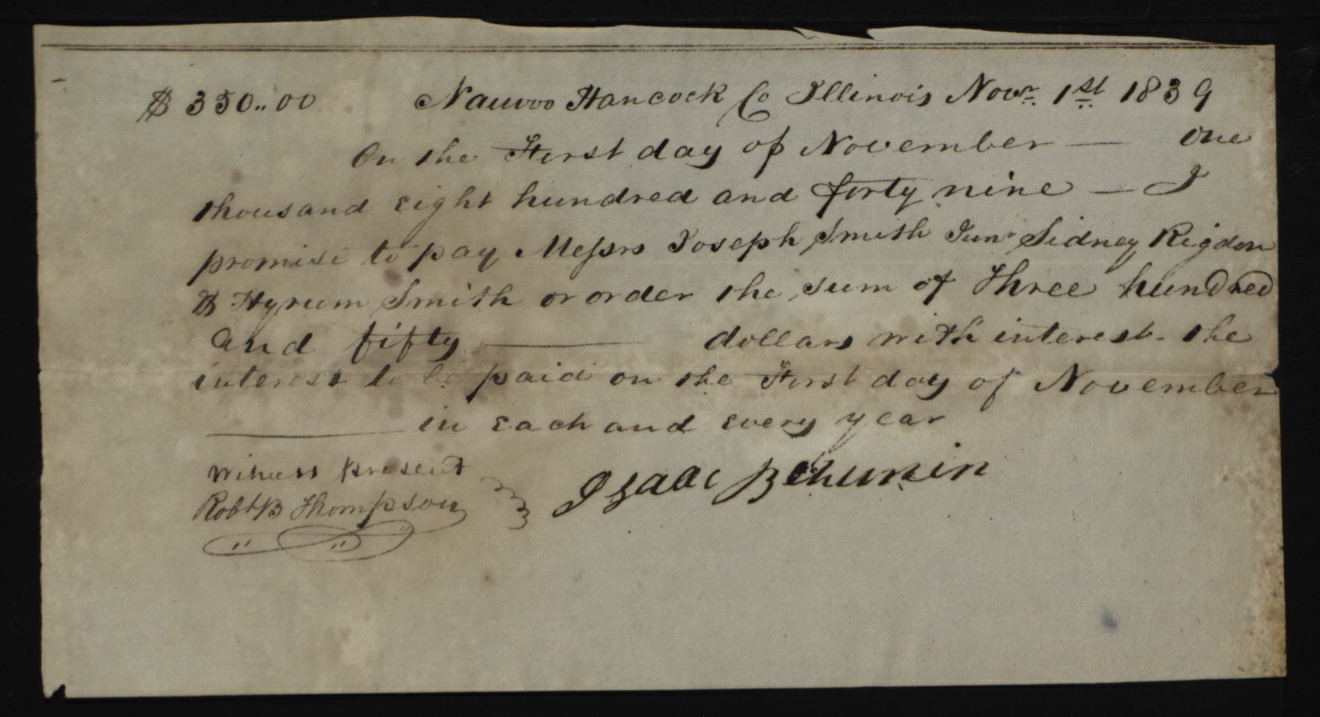 $350..00 Nauvoo Hancock Co Illinois Novr. 1st 1839
On the First day of November — One
thousand Eight hundred and forty nine — I
promise to pay Messrs Joseph Smith Junr Sidney Rigdon
& Hyrum Smith or order the sum of Three hundred
and fifty ——— dollars with interest. the
interest to be paid on the First day of November
——— in Each and Every year
Witness present
Robt B Thompson
Isaac Behunin